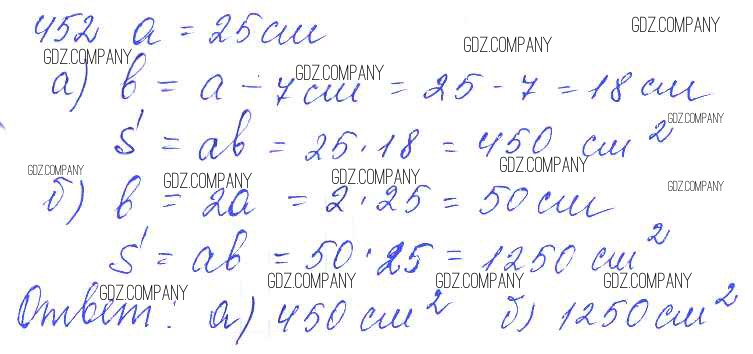 452 a = 25 см
GDZ.COMPANY GDZ.COMPANY GDZ.COMPANY
а) b = a - 7 см = 25 - 7 = 18 см
GDZ.COMPANY GDZ.COMPANY
S = ab = 25 · 18 = 450 см²
GDZ.COMPANY GDZ.COMPANY
GDZ.COMPANY GDZ.COMPANY GDZ.COMPANY GDZ.COMPANY
б) b = 2a = 2 · 25 = 50 см
S = ab = 50 · 25 = 1250 см²
GDZ.COMPANY GDZ.COMPANY GDZ.COMPANY GDZ.COMPANY
Ответ: а) 450 см² б) 1250 см²